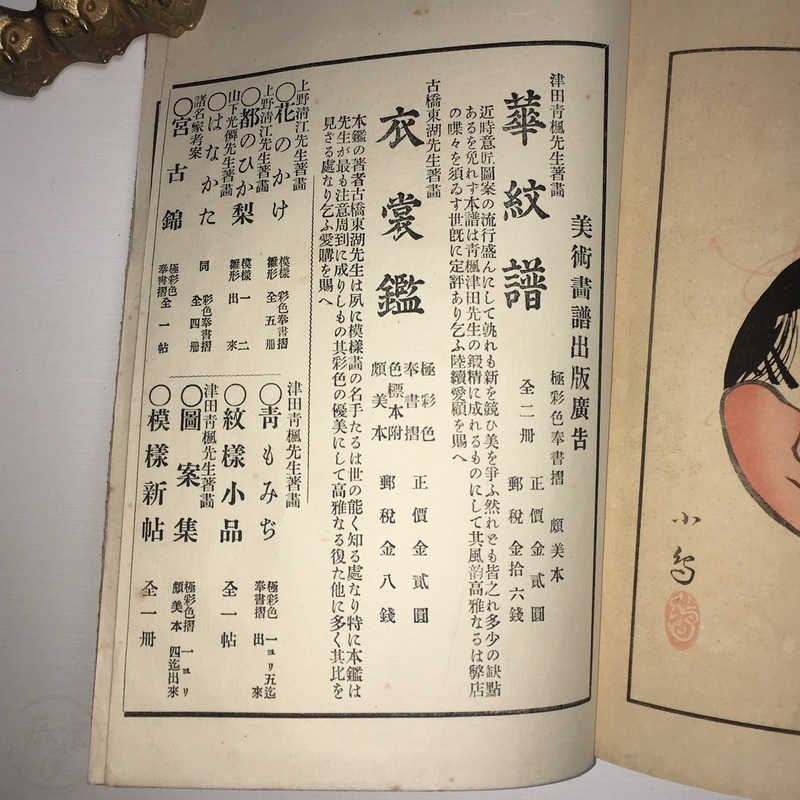 美術畵譜出版廣告
津田青楓先生著畵
華紋譜
極彩色奉書摺　頗美本
全二冊
正價金貳圓
郵税金拾六錢
近時意匠圖案の流行盛んにして孰れも新を競ひ美を爭ふ然れども皆之れ多少の缺點
あるを免れす本譜は青楓津田先生の鍛精に成れるものにして其風韵高雅なるは弊店
の喋々を須ゐす世既に定評あり乞ふ陸續愛顧を賜へ
古橋東湖先生著畵
衣裳鑑
極彩色
奉書摺
色標本附
頗美本
正價金貳圓
郵税金八錢
本鑑の著者古橋東湖先生は夙に模樣畵の名手たるは世の能く知る處なり特に本鑑は
先生が最も注意周到に成りしもの其彩色の優美にして高雅なる復た他に多く其比を
見さる處なり乞ふ愛購を賜へ
上野清江先生著畵
〇花のかけ
模樣雛形
彩色奉書摺
全五冊
上野清江先生著畵
〇都のひか梨
模樣雛形
一二出來
山下光僯先生著畵
〇はなかた
同
彩色奉書摺
全四冊
諸名家考案
〇宮古錦
極彩色
奉書摺
全一帖
津田青楓先生著畵
〇青もみぢ
極彩色
奉書摺
一ヨリ五迄
出來
〇紋樣小品
全一帖
津田青楓先生著畵
〇圖案集
極彩色摺
頗美本
一ヨリ
四迄出來
〇模樣新帖
全一冊